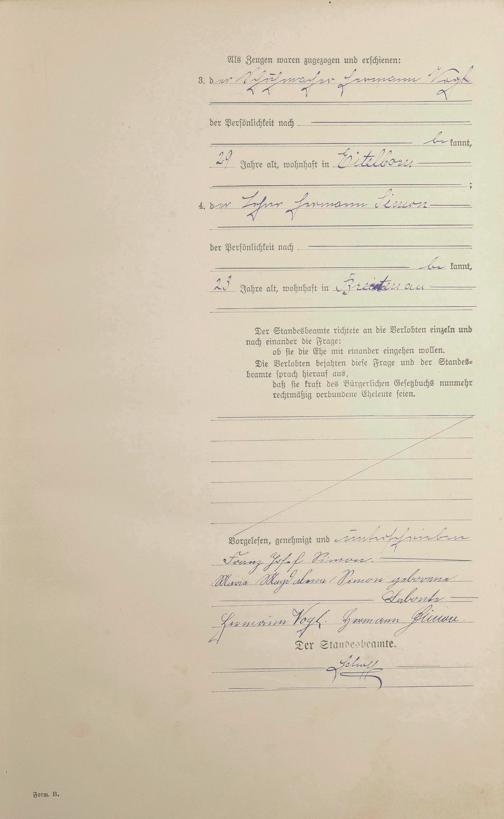 Als Zeugen waren zugezogen und erschienen:
3. der Schuhmacher Hermann Vogt
der Persönlichkeit nach
bekannt,
29 Jahre alt, wohnhaft in Eitelborn
;
4. der Hermann Simon
der Persönlichkeit nach
bekannt,
23 Jahre alt, wohnhaft in Breitenau
Der Standesbeamte richtete an die Verlobten einzeln und
nach einander die Frage:
ob sie die Ehe mit einander eingehen wollen.
Die Verlobten bejahten diese Frage und der Standes-
beamte sprach hierauf aus,
daß sie kraft des Bürgerlichen Gesetzbuchs nunmehr
rechtmäßig verbundene Eheleute seien.
Vorgelesen, genehmigt und unterschrieben
Franz Josef Simon.
Maria Magdalena Simon geborene
Labonte
Hermann Vogt. Hermann Simon.
Der Standesbeamte.
Form. B.